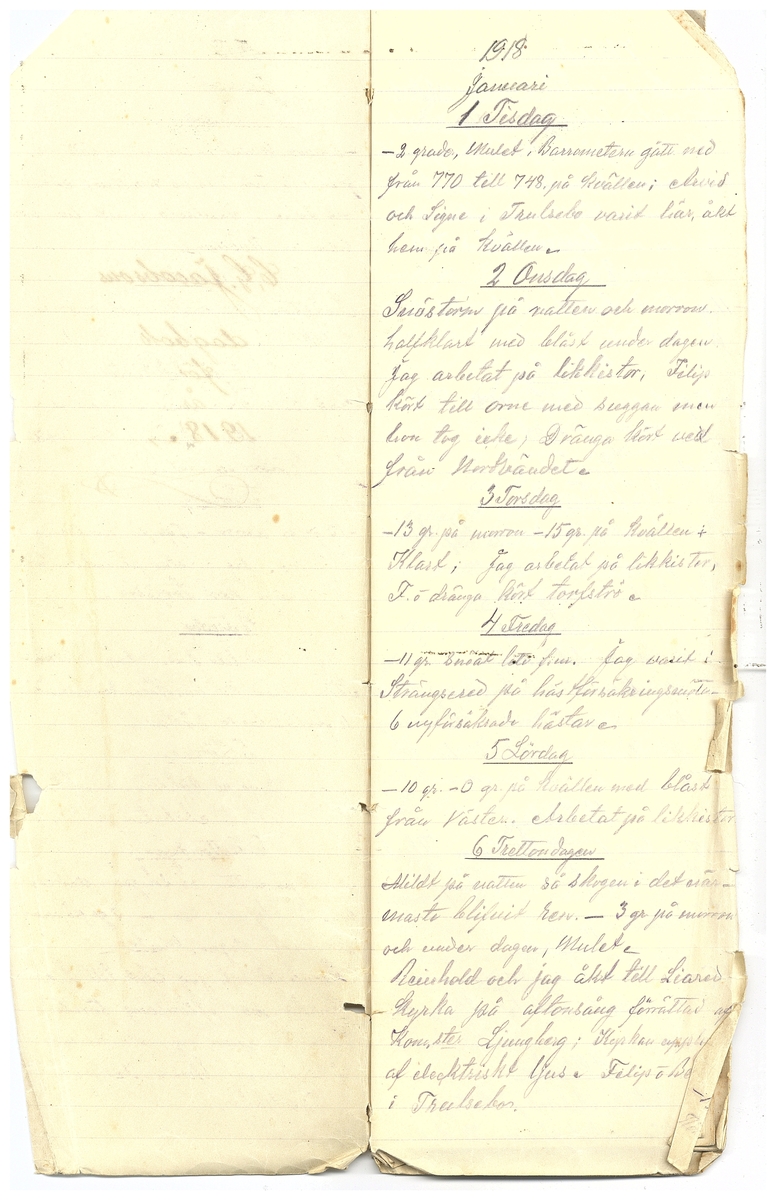 1918
Januari
1 Tisdag
-2 grader, Mulet, Barrometern gått ned
från 770 till 748. på kvällen; Arvid
och Signe i Trulsebo varit här, åkt
hem på kvällen.
2 Onsdag
Snöstorm på natten och morron.
halfklart med blåst under dagen.
Jag arbetat på likkistor, Filip
kört till orne med suggan men
hon tog icke, Dränga kört ved
från Nordvändet.
3 Torsdag
-13 gr. på morron -15 gr. på kvällen;
Klart; Jag arbetat på likkistor,
F. o dränga kört torfströ.
4 Fredag
-11 gr. snöat f.m. Jag varit i
Strängsered på hästförsäkringsmöte
6 nyförsäkrade hästar.
5 Lördag
-10 gr. -0 gr. på kvällen med blåst
från Väster. Arbetat på likkistor
6 Trettondagen
Mildt på natten så skogen i det när-
maste blifvit ren. -3 gr på morron
och under dagen, Mulet.
Reinhold och jag åkt till Liared
Kyrka på aftonsång förrättad af
Ljungberg; Kyrkan
af elecktriskt ljus. Filip o
i Trulsebo.
C.G. Jacobson
dagbok
för
1918.